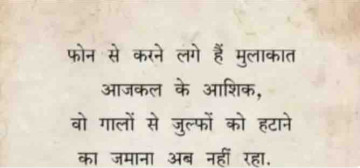 फोन से करने लगे हैं मुलाकात
आजकल के आशिक,
वो गालों से जुल्फों को हटाने
का जमाना अब नहीं रहा.